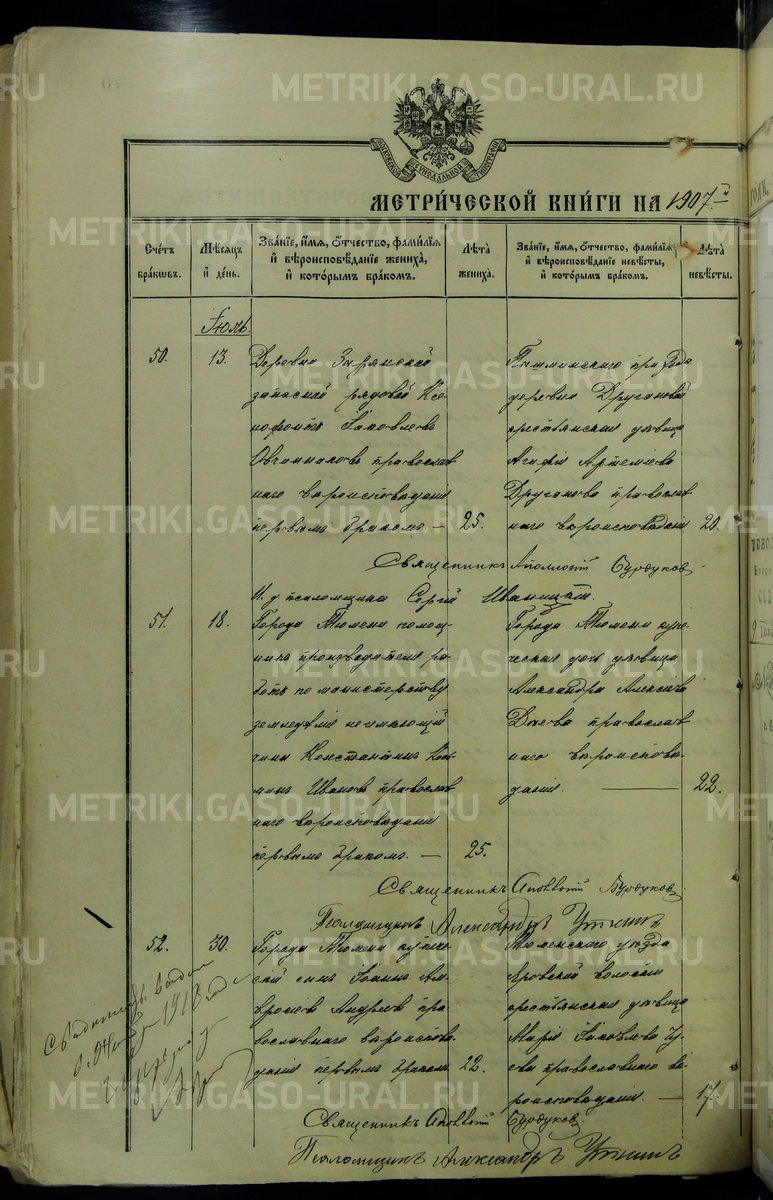 МОСКОВСКОЙ СѴНОДАЛЬНОЙ ТИПОГРАФІИ
МЕТРИ́ЧЕСКОЙ КНИ́ГИ НА 1907.й
Сче́тъ бра́кѡвъ.
Мѣ́сѧцъ и҆ де́нь.
Зва́нїе, и҆́мѧ, ѻ҆́тчество, фами́лїѧ
и҆ вѣроисповѣ́данїе жениха̀,
и҆ кото́рымъ бра́комъ.
Лѣ́та жениха̀.
Зва́нїе, и҆́мѧ, ѻ҆́тчество, фами́лїѧ
и҆ вѣроисповѣ́данїе невѣ́сты,
и҆ кото́рымъ бра́комъ.
Лѣ́та невѣ́сты.
Іюль.
50.
13.
Деревни
запасной рядовой Ксе-
нофонтъ Іаковлевъ
Овчинниковъ православ
наго вѣроисповѣданія
первымъ бракомъ —
25.
Пышминскаго
деревни Другановой
крестьянская дѣвица
Агафія Артеміева
Друганова православ
наго вѣроисповѣданія
20.
Священникъ Аполлонъ Бурдуковъ
И. д. псаломщика Сергій Иваницкій.
51.
18.
Города Тюмени помощ-
никъ производителя ра-
ботъ по министерству
земледѣлія неимѣющій
чина Константинъ Коз-
минъ Ивановъ православ
наго вѣроисповѣданія
первымъ бракомъ. —
25.
Города Тюмени купе-
ческая дочь дѣвица
Александра Алексѣева
православ
наго вѣроисповѣ-
данія. —
22.
Священникъ Аполлонъ Бурдуковъ
Псаломщикъ Александръ Уткинъ
52.
30.
Города Тюмени купече-
скій сынъ Іоаннъ Ам-
вросіевъ Андреевъ пра-
вославнаго вѣроисповѣ-
данія первымъ бракомъ
22.
Тюменскаго уѣзда
волости
крестьянская дѣвица
Марія Іаковлева
православнаго вѣ-
роисповѣданія. —
17.
Священникъ Аполлонъ Бурдуковъ
Псаломщикъ Александръ Уткинъ
1918 года
METRIKI.GASO-URAL.RU